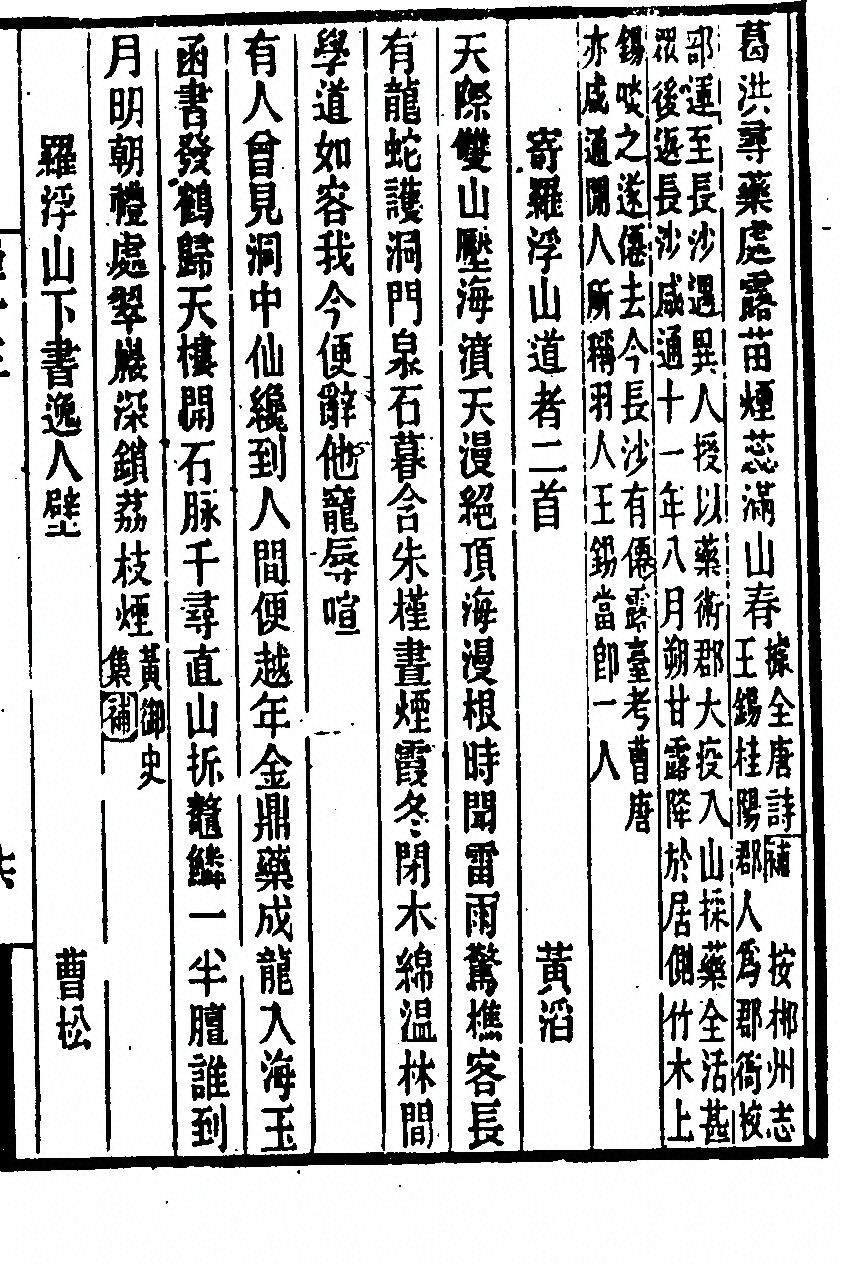 葛洪尋藥處露苗煙蕊滿山春據全唐詩補　按郴州志
王錫桂陽郡人爲郡衙校
部運至長沙遇異人授以藥術郡大疫入山採藥全活甚
眾後返長沙咸通十一年八月朔甘露降於居側竹木上
錫啖之遂僊去今長沙有僊露臺考曹唐
亦咸通閒人所稱羽人王錫當卽一人
寄羅浮山道者二首　黃滔
天際雙山壓海濆天漫絕頂海漫根時聞雷雨驚樵客長
有龍蛇護洞門泉石暮含朱槿晝煙霞冬閉木綿温林間
學道如容我今便辭他寵辱喧
有人曾見洞中仙纔到人間便越年金鼎藥成龍入海玉
函書發鶴歸天樓開石脉千尋直山拆鼇鱗一半膻誰到
月明朝禮處翠巖深鎖荔枝煙黃御史
集補
羅浮山下書逸人壁　曹松